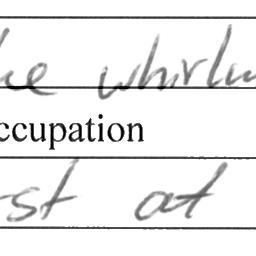 he whirlw
ccupation
st at